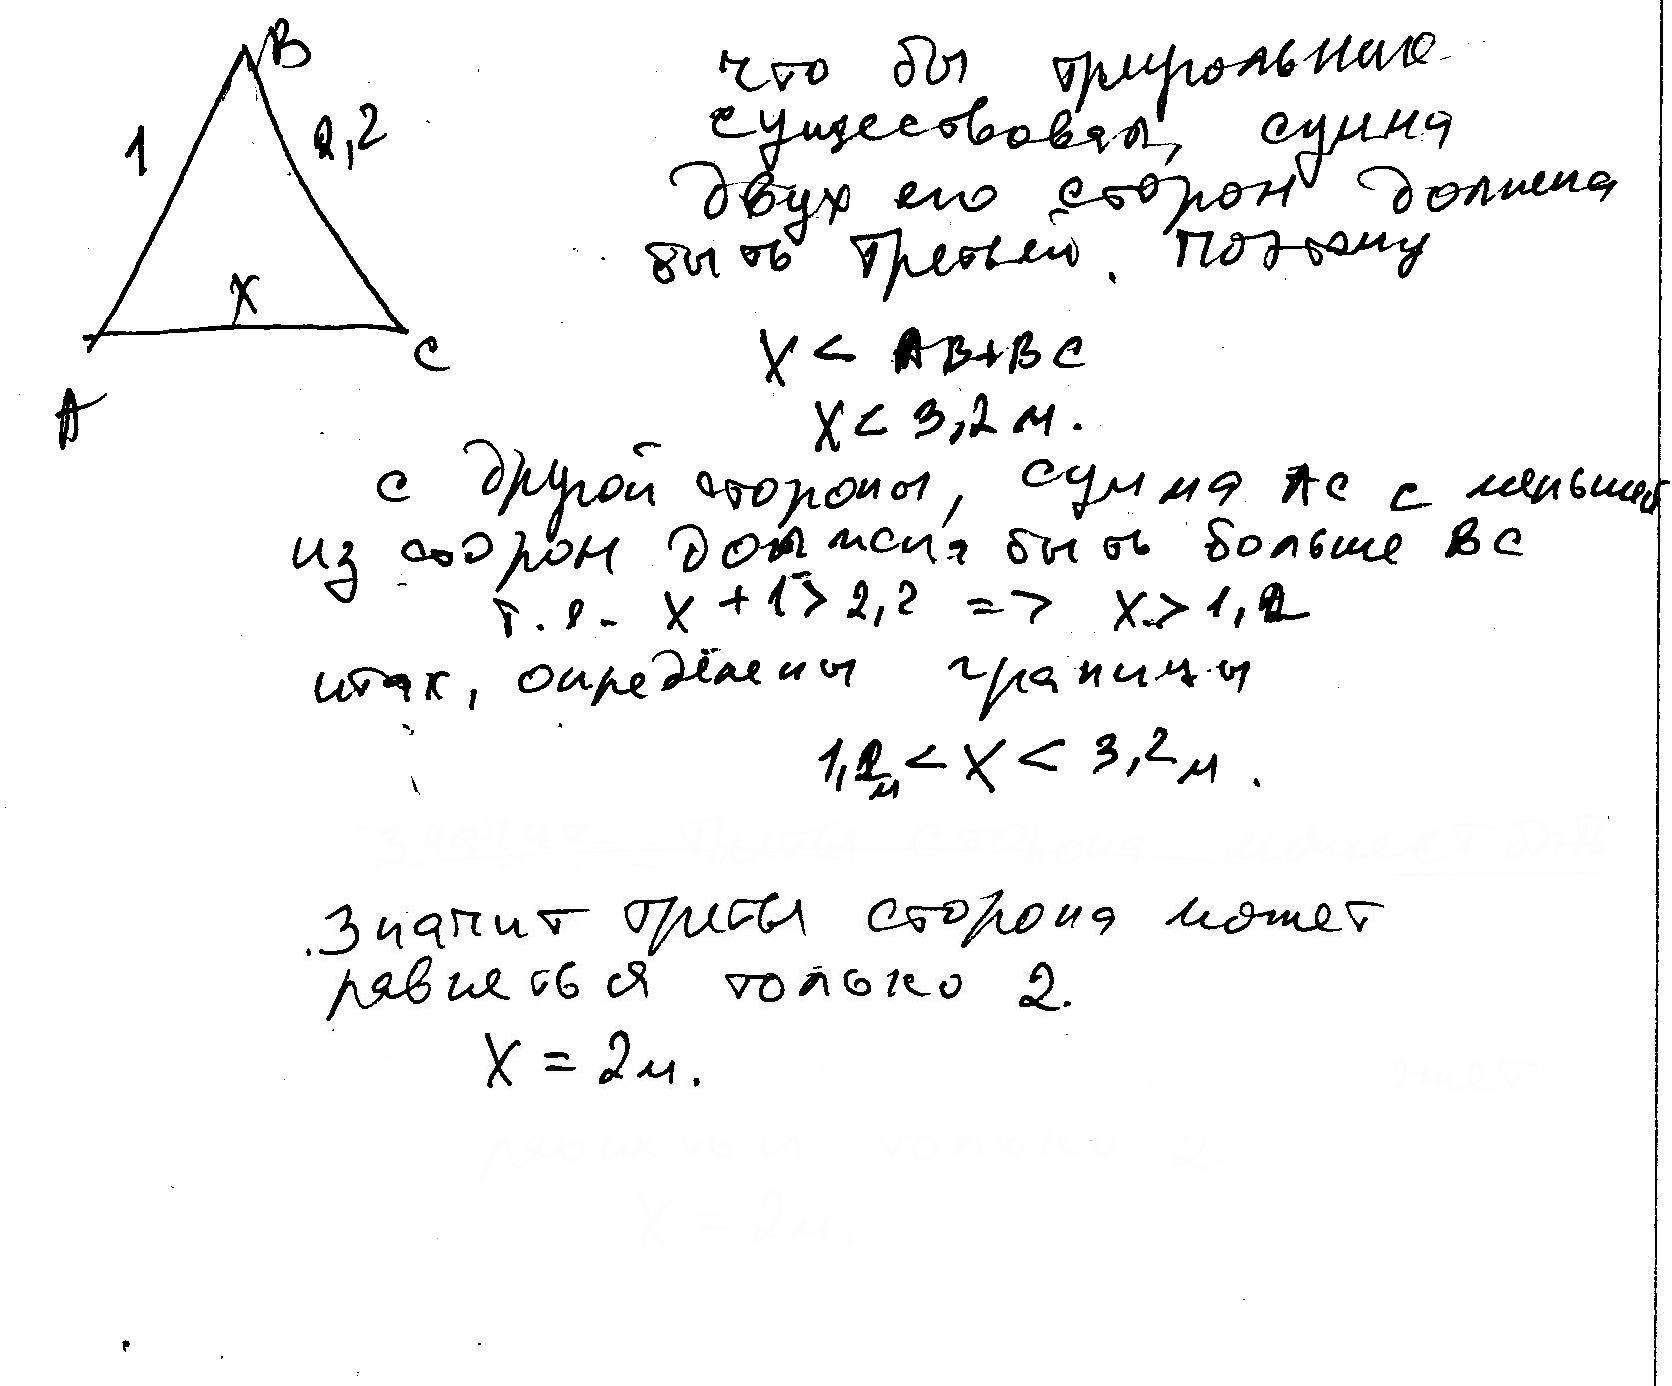 B
1
2,2
X
A
C
что бы треугольник
существовал, сумма
двух его сторон должна
быть третьей. Поэтому
X < AB+BC
X < 3,2 м.
с другой стороны, сумма AC с меньшей
из сторон должна быть больше BC
т.е. X + 1 > 2,2 => X > 1,2
итак, определены границы
1,2м < X < 3,2 м.
Значит третья сторона может
равняться только 2.
X = 2 м.